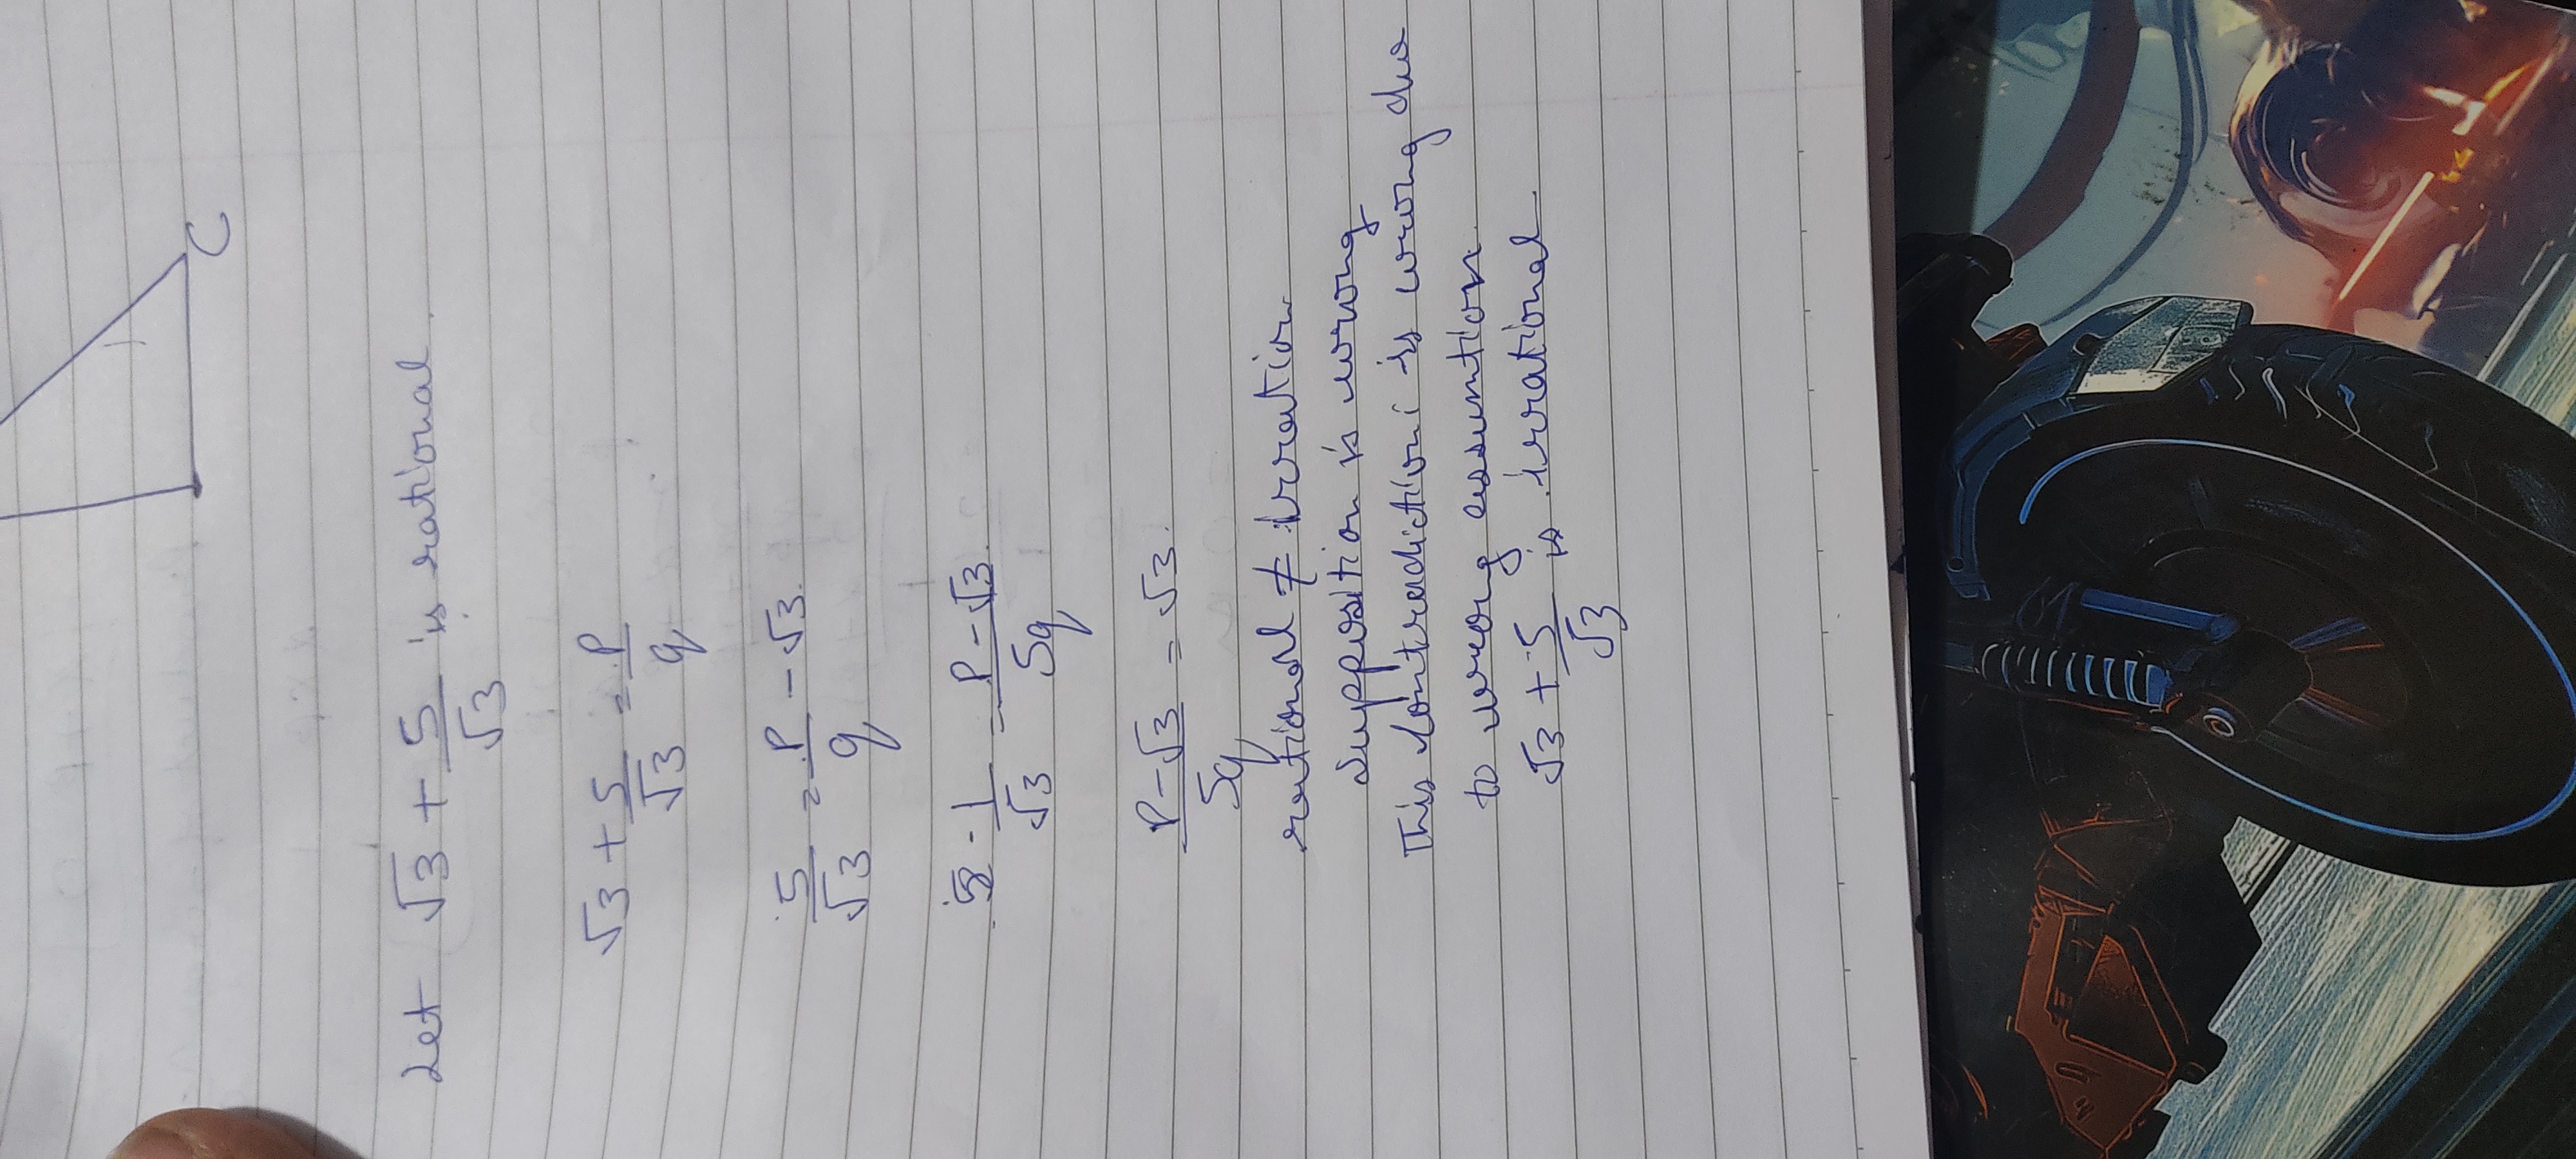 C
Let √3 + 5/√3 is rational
√3 + 5/√3 = P/q
5/√3 = P/q - √3
5 · 1/√3 = P-√3/5q
P-√3/5q = √3
rational ≠ irration
supposition is wrong
This contradiction i is wrong due
to wrong assumtion
√3 + 5/√3 is irrational